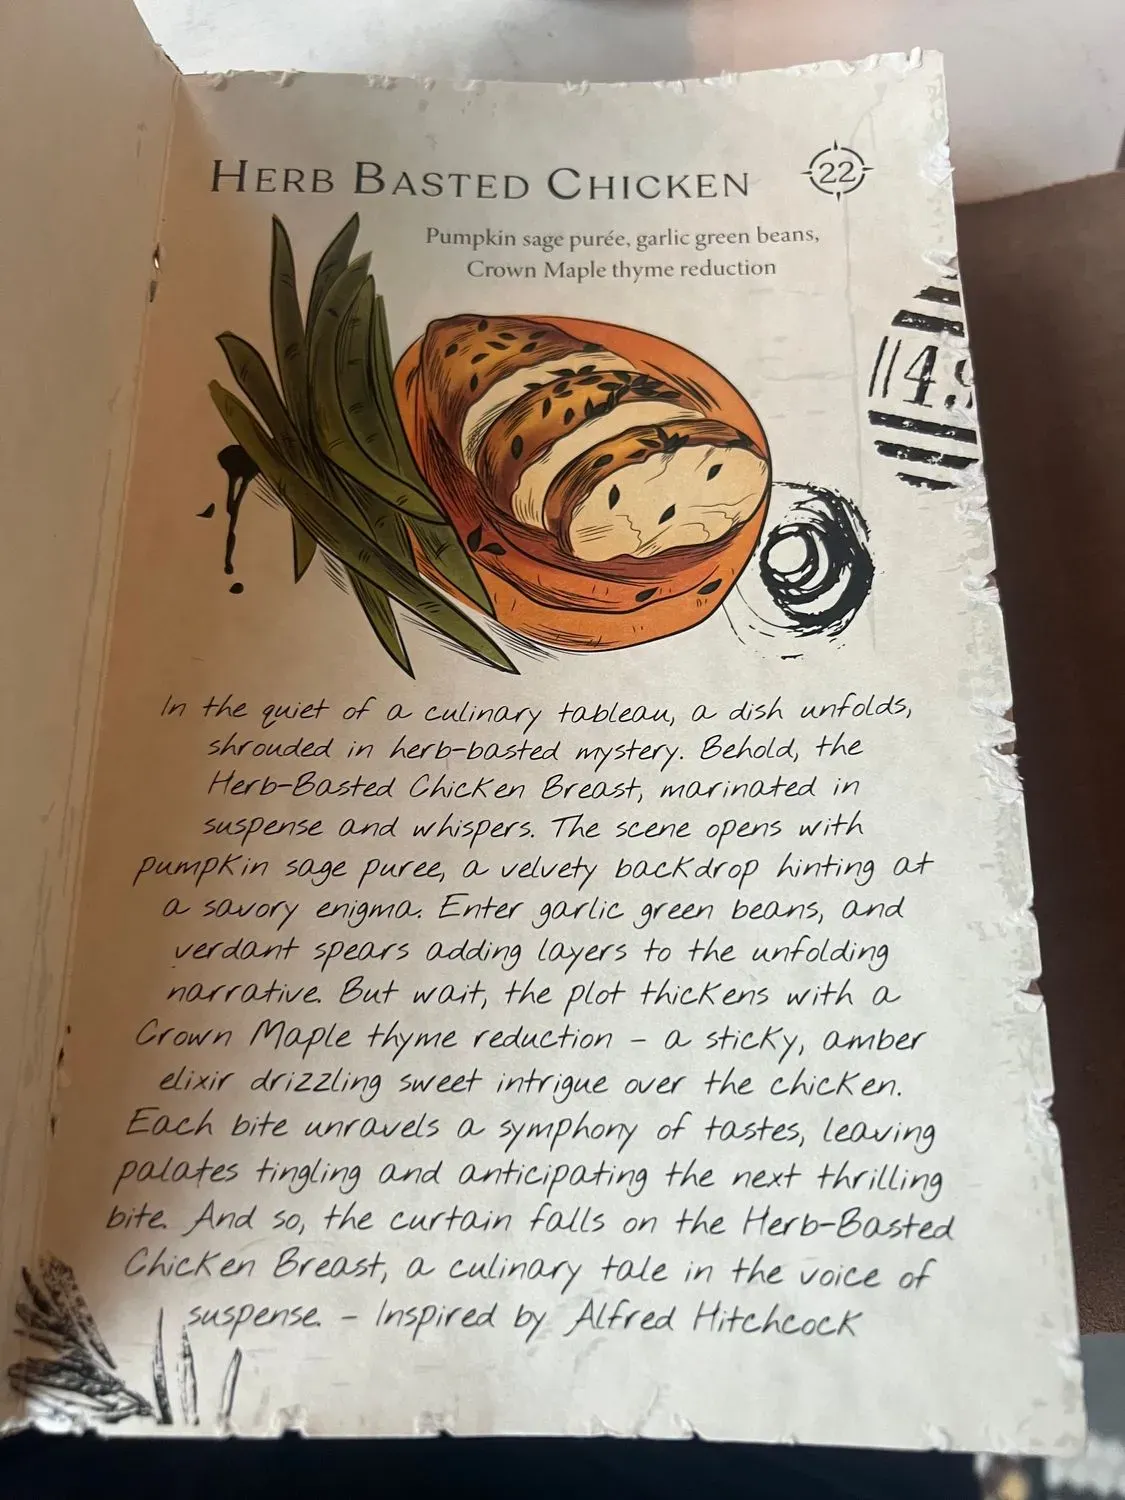 HERB BASTED CHICKEN
22
Pumpkin sage purée, garlic green beans,
Crown Maple thyme reduction
In the quiet of a culinary tableau, a dish unfolds,
shrouded in herb-basted mystery. Behold, the
Herb-Basted Chicken Breast, marinated in
suspense and whispers. The scene opens with
pumpkin sage puree, a velvety backdrop hinting at
a savory enigma. Enter garlic green beans, and
verdant spears adding layers to the unfolding
narrative. But wait, the plot thickens with a
Crown Maple thyme reduction - a sticky, amber
elixir drizzling sweet intrigue over the chicken.
Each bite unravels a symphony of tastes, leaving
palates tingling and anticipating the next thrilling
bite. And so, the curtain falls on the Herb-Basted
Chicken Breast, a culinary tale in the voice of
suspense. - Inspired by Alfred Hitchcock